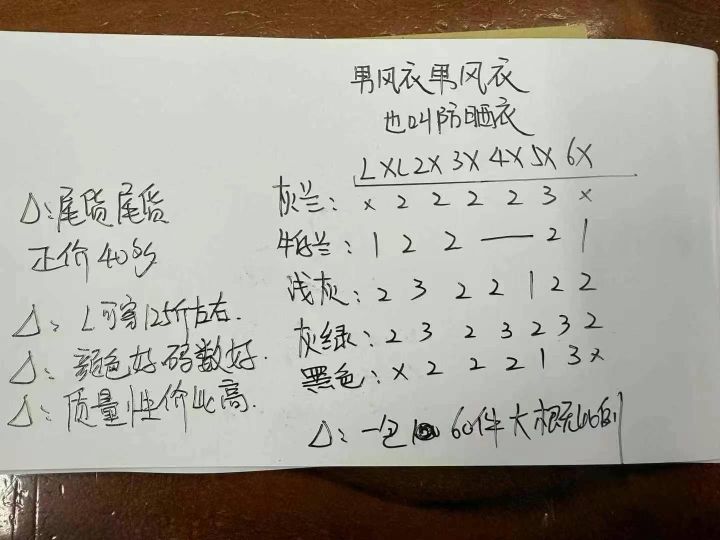 男风衣男风衣
也叫防晒衣
L XL 2X 3X 4X 5X 6X
灰兰: x 2 2 2 2 3 x
牛仔兰: 1 2 2 — 2 1
浅灰: 2 3 2 2 1 2 2
灰绿: 2 3 2 3 2 3 2
黑色: x 2 2 2 1 3 x
△: 一包 60件大概
△: 尾货尾货
正价40多
△: L可穿125斤左右.
△: 颜色好.码数好.
△: 质量性价比高.